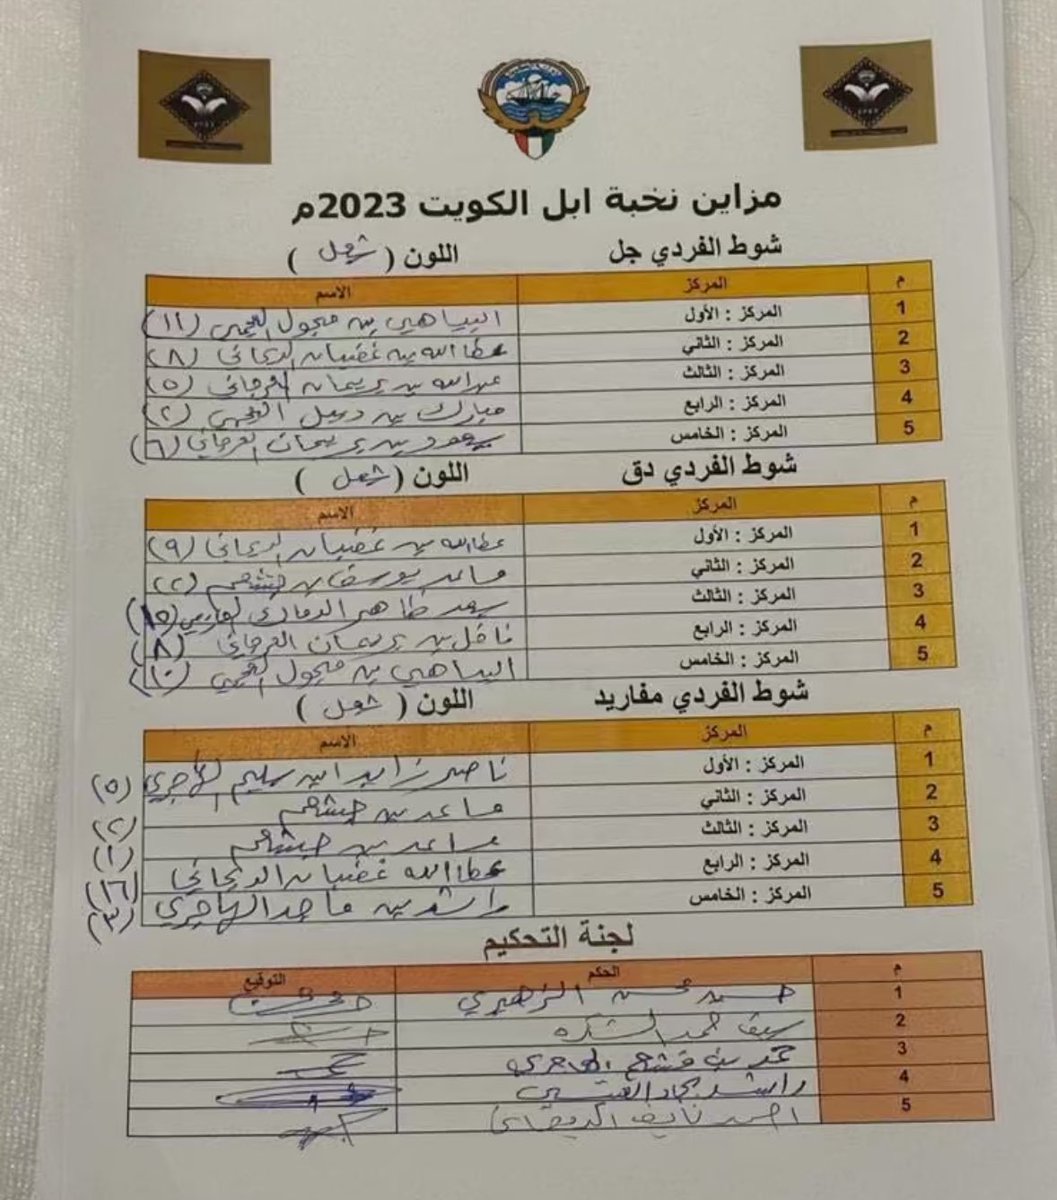 مزاين نخبة ابل الكويت 2023م
شوط الفردي جل اللون ( شعل )
م المركز الاسم
1 المركز : الأول البياهي بن مجول العجمي (١١)
2 المركز : الثاني عطاالله بن غضبان الديحاني (٨)
3 المركز : الثالث عبدالله بن بريمان العرجاني (٥)
4 المركز : الرابع مبارك بن دعبل العجمي (٢)
5 المركز : الخامس سعود بن بريمان العرجاني (٦)
شوط الفردي دق اللون ( شعل )
م المركز الاسم
1 المركز : الأول عطاالله بن غضبان الديحاني (٩)
2 المركز : الثاني ماعد يوسف بن جشعم (٢)
3 المركز : الثالث سعد ظاهر (١٥)
4 المركز : الرابع نافل بن بريمان العرجاني (٨)
5 المركز : الخامس البياهي بن مجول العجمي (١٠)
شوط الفردي مفاريد اللون ( شعل )
م المركز الاسم
1 المركز : الأول ناصر زايد ابن سليم الهاجري (٥)
2 المركز : الثاني ماعد بن جشعم (٢)
3 المركز : الثالث ماعد بن جشعم (١)
4 المركز : الرابع عطاالله غضبان الديحاني (١٦)
5 المركز : الخامس راشد بن ماجد الهاجري (٣)
لجنة التحكيم
م الحكم التوقيع
1 حمد محسن الزهيري
2 سيف حمد
3 حمد بن الهاجري
4 راشد
5 احمد نايف الديحاني